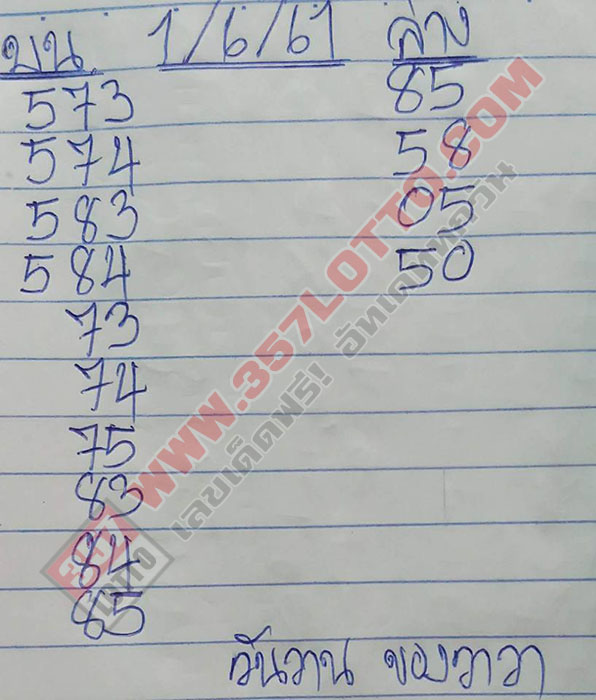 บน 1/6/61 ล่าง
573 85
574 58
583 05
584 50
73
74
75
83
84
85
วันวาน ของวาวา
WWW.357LOTTO.COM
เลขเด็ดฟรี! อัพเดททุกงวด
357